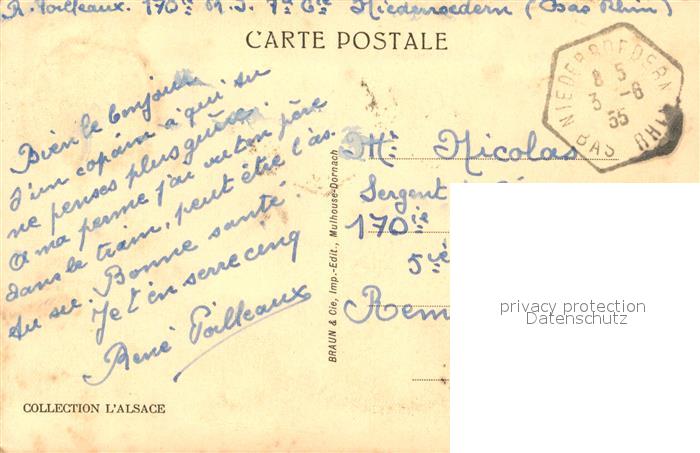 R. Poilleaux. 170ie R.I. 7e Cie Niederroedern (Bas Rhin)
CARTE POSTALE
NIEDERROEDERN
8 5
3 -6
35
BAS RHIN
Bien le bonjour
d'un copain à qui tu
ne penses plus guère.
A ma perme j'ai vu ton père
dans le train, peut être l'as
tu su. Bonne santé.
Je t'en serre cinq
René Poilleaux
BRAUN & Cie, Imp.-Edit., Mulhouse-Dornach
Mr Nicolas
Sergent
170ie
5ie
Rem
privacy protection
Datenschutz
COLLECTION L'ALSACE